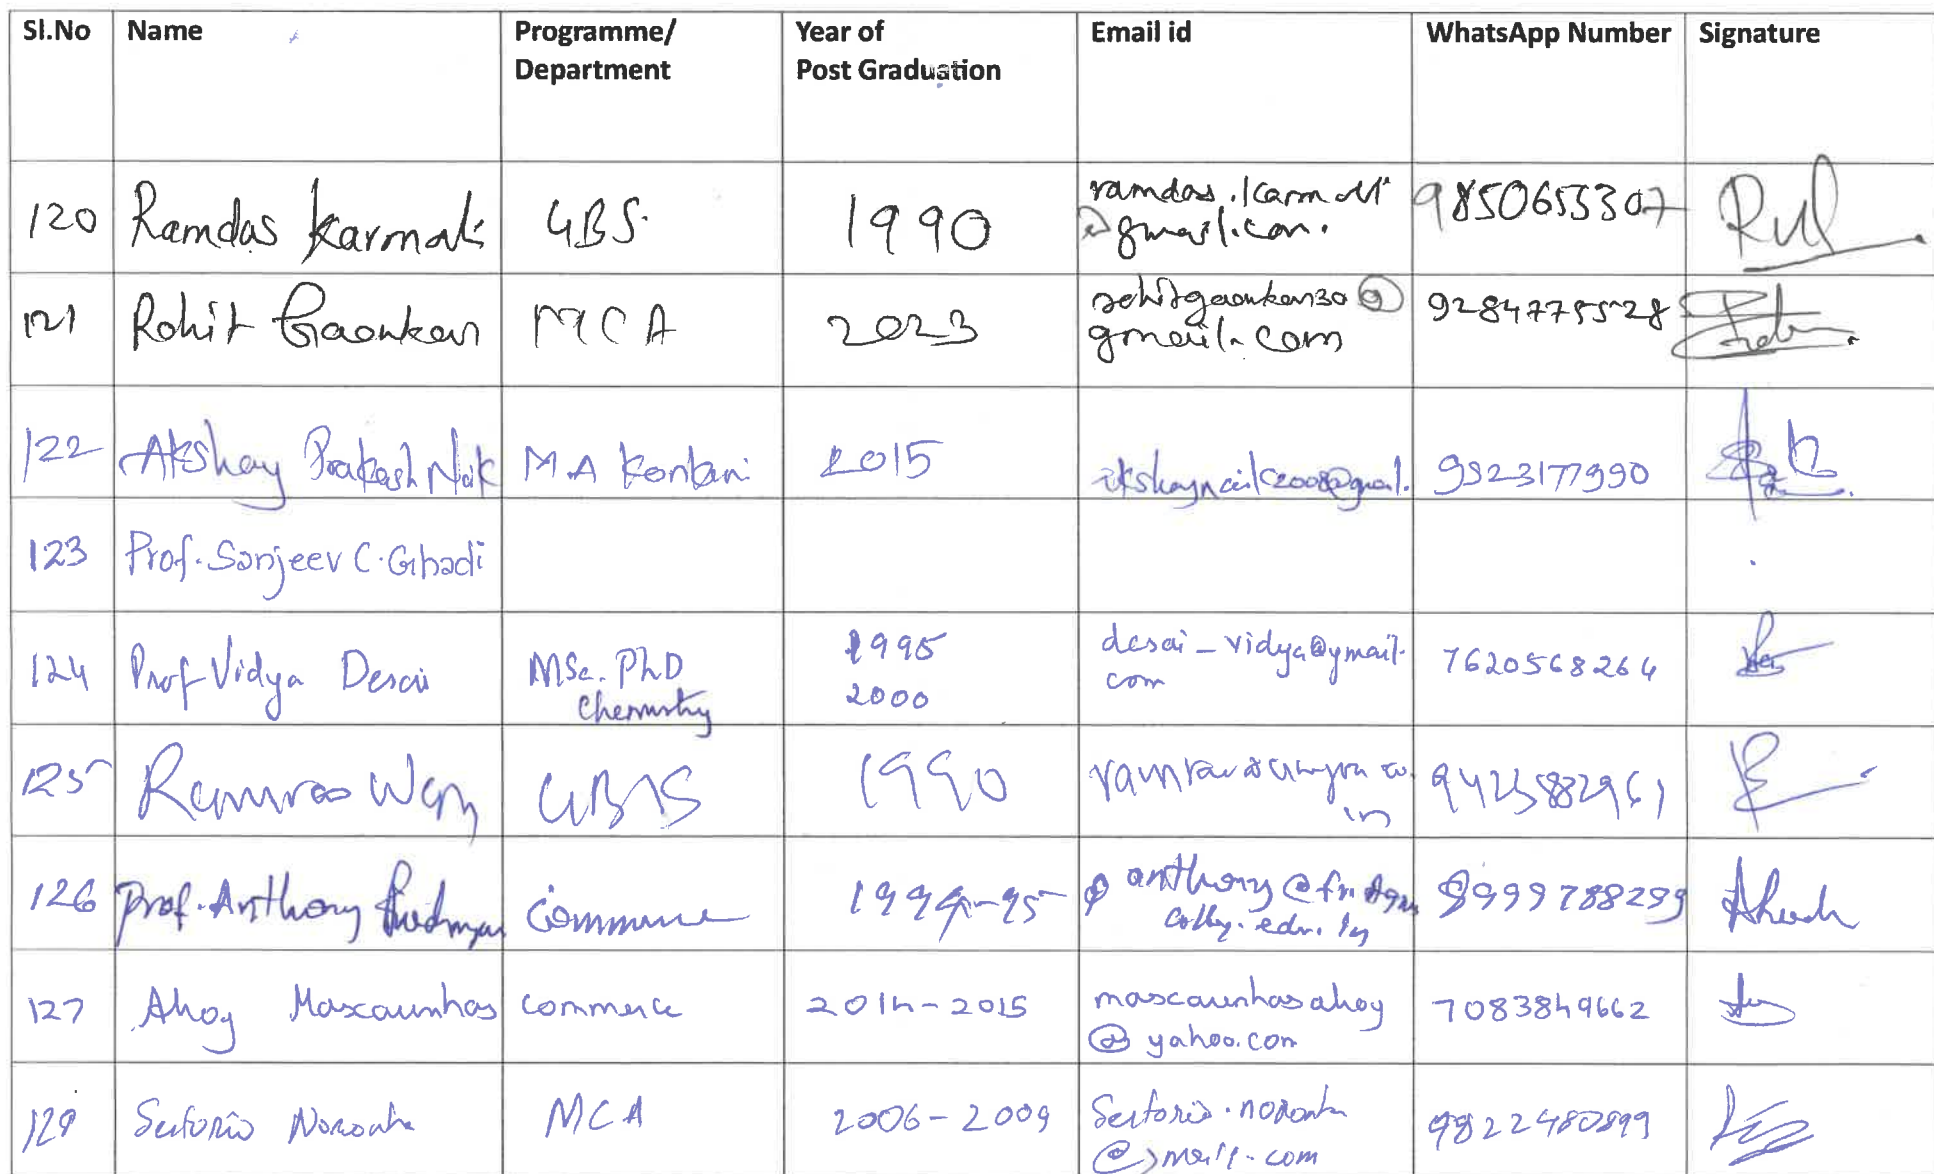 Sl.No Name Programme/ Department Year of Post Graduation Email id WhatsApp Number Signature
120 Ramdas Karmali GBS. 1990 ramdas.karmali @gmail.com. 9850655307
121 Rohit Gaonkar MCA 2023 rohitgaonkar30@ gmail.com
122 Akshay Prakash Naik M.A Konkani 2015 akshaynaik2008@gmail. 9823177990
123 Prof. Sanjeev C. Ghadi
124 Prof Vidya Desai MSc. PhD Chemistry 1995 2000 desai_vidya@ymail. com 7620568264
125 Ramrao GBS 1990
126 Prof. Anthony Commerce 1994-95 anthony@ 9999788299
127 Ahoy Mascarenhas commerce 2014-2015 mascarenhasahoy @yahoo.com 7083849662
129 Sertorio Noronha MCA 2006-2009 Sertorio.noronha 9822480899